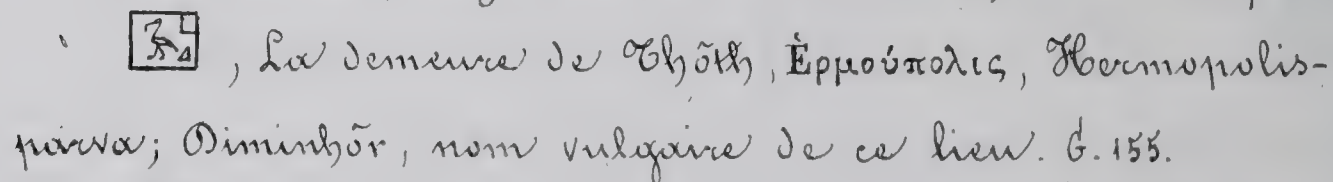 , La demeure de Thōth, Ἑρμούπολις, Hermopolis-
parva; Diminhōr, nom vulgaire de ce lieu. G. 155.